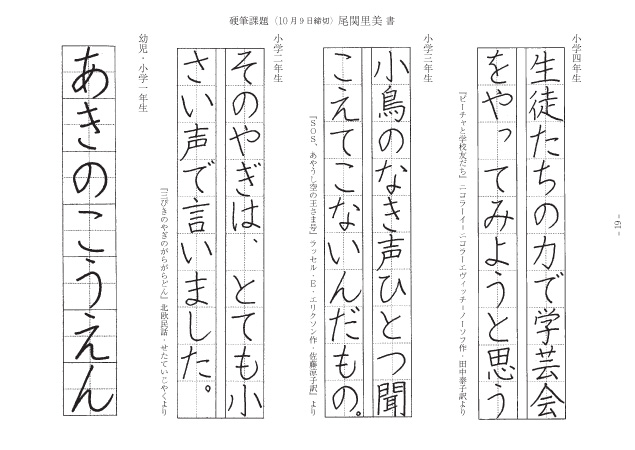 硬筆課題（10月9日締切）尾関里美 書
小学四年生
生徒たちの力で学芸会
をやってみようと思う
『ビーチャと学校友だち』ニコラーイ＝ニコラーエヴィッチ＝ノーソフ作・田中泰子訳より
小学三年生
小鳥のなき声ひとつ聞
こえてこないんだもの。
『SOS、あやうし空の王さま号』ラッセル・E・エリクソン作・佐藤涼子訳』より
小学二年生
そのやぎは、とても小
さい声で言いました。
『三びきのやぎのがらがらどん』北欧民話・せたていじやくより
幼児・小学一年生
あきのこうえん
- 61 -